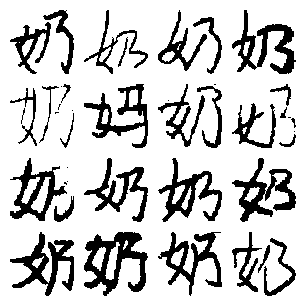 奶奶奶奶
奶妈奶奶
奶奶奶奶
奶奶奶奶